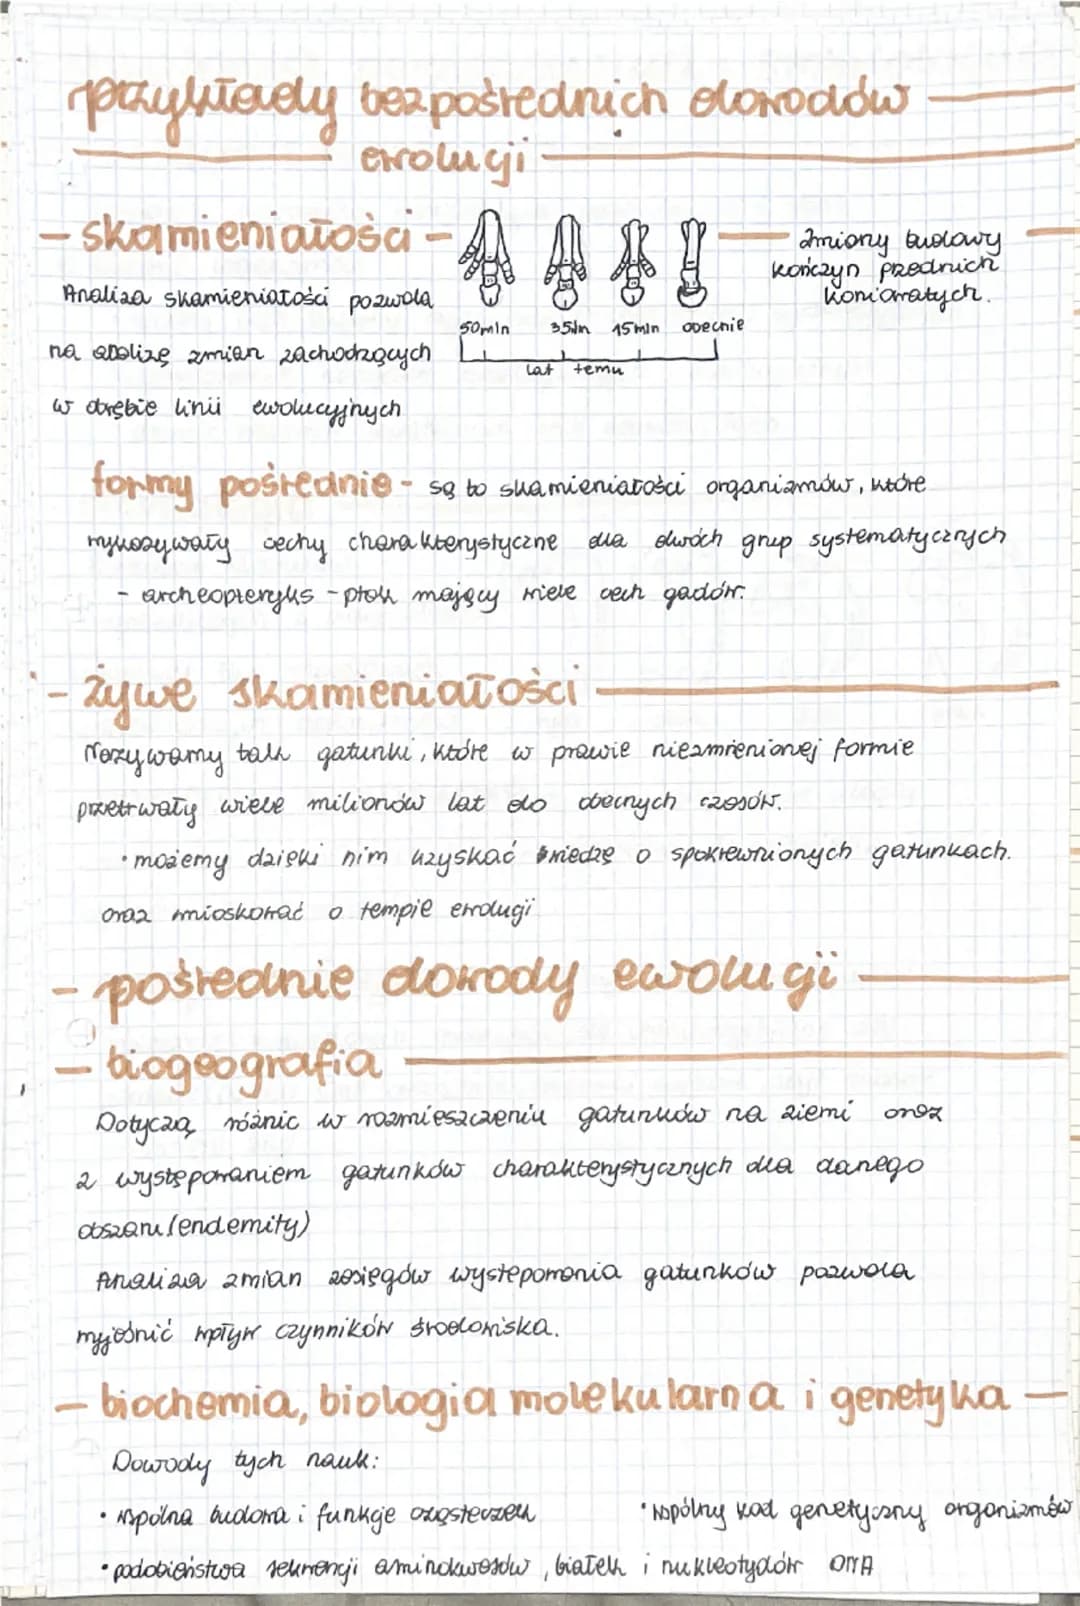 przykłady bezpośrednich dowodów
ewolucji
- skamieniałości -
zmiany budowy
kończyn przednich
koniowatych.
Analiza skamieniałości pozwala
50mln 35mln 15mln obecnie
na analizę zmian zachodzących
lat temu
w obrębie linii ewolucyjnych
formy pośrednie - są to skamieniałości organizmów, które
wykazywały cechy charakterystyczne dla dwóch grup systematycznych
- archeopteryks - ptak mający wiele cech gadów.
- żywe skamieniałości
Nazywamy tak gatunki, które w prawie niezmienionej formie
przetrwały wiele milionów lat do obecnych czasów.
• możemy dzięki nim uzyskać wiedzę o spokrewnionych gatunkach.
oraz wnioskować o tempie ewolucji
- pośrednie dowody ewolucji
- biogeografia
Dotyczą różnic w rozmieszczeniu gatunków na ziemi oraz
z występowaniem gatunków charakterystycznych dla danego
obszaru (endemity)
Analiza zmian zasięgów występowania gatunków pozwala
wyjaśnić wpływ czynników środowiska.
- biochemia, biologia molekularna i genetyka -
Dowody tych nauk:
• wspólna budowa i funkcje cząsteczek • wspólny kod genetyczny organizmów
• podobieństwa sekwencji aminokwasów, białek i nukleotydów DNA